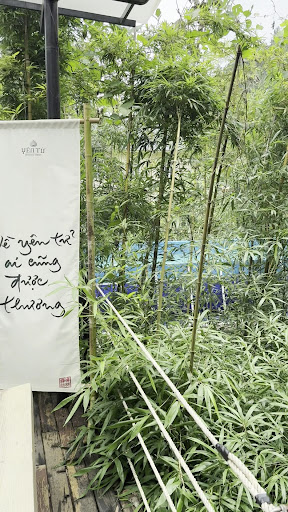 YÊN TỬ
Về yên tử
ai cũng
được
thương